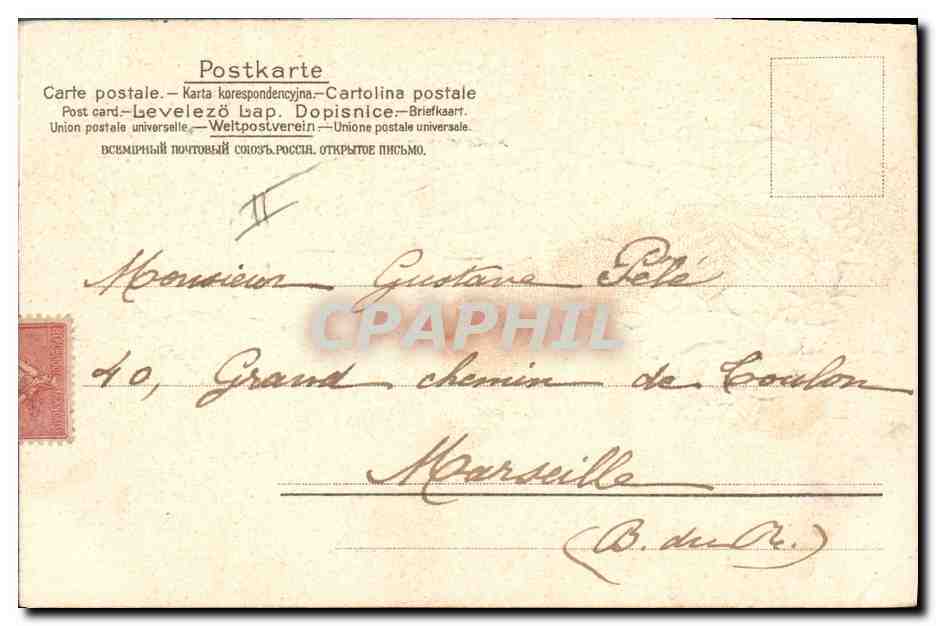 Postkarte
Carte postale. — Karta korespondencyjna. — Cartolina postale
Post card. — Levelező Lap. Dopisnice. — Briefkaart.
Union postale universelle. — Weltpostverein. — Unione postale universale.
ВСЕМІРНЫЙ ПОЧТОВЫЙ СОЮЗЪ. РОССІЯ. ОТКРЫТОЕ ПИСЬМО.
II
Monsieur Gustave Pélé
CPAPHIL
40, Grand chemin de Toulon
Marseille
(B. du R.)